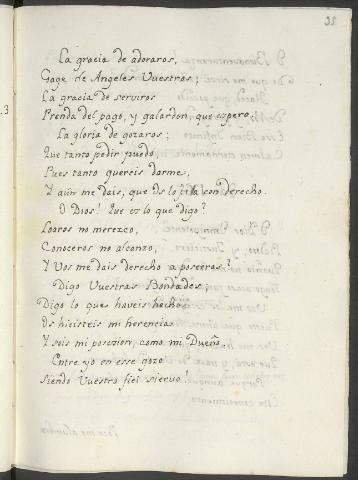 35
La gracia de adoraros,
Gage de Angeles Vuestros;
La gracia de serviros
Prenda del pago, y galardon, que espero.
La gloria de gozaros;
Que tanto pedir puedo,
Pues tanto quereis darme,
Y aún me dais, que os lo pida con derecho.
O Dios! Que es lo que digo?
Loores no merezco,
Conoceros no alcanzo,
Y Vos me dais derecho a poseeros?
Digo Vuestras Bondades;
Digo lo que haveis hecho:
Os hicisteis mi herencia
Y sois mi posezion, como mi Dueño.
Entre yo en esse gozo
Siendo Vuestro fiel siervo!